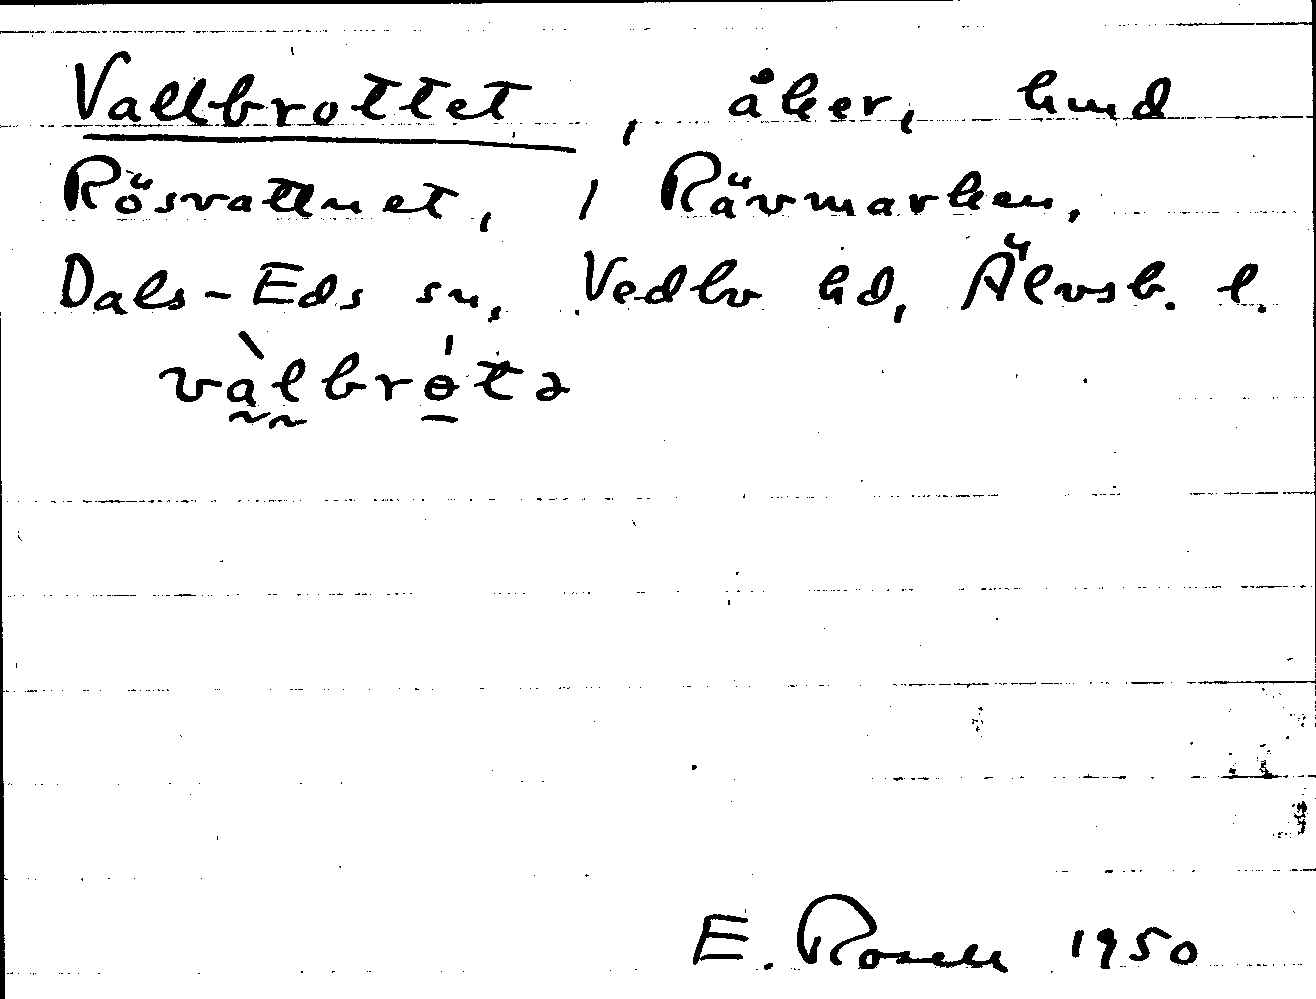 Vallbrottet, åker, hmd
Rösvattnet, 1 Rävmarken,
Dals-Eds sn, Vedbo hd, Älvsb. l.
vàlbrɵ́tə
E. Rosell 1950